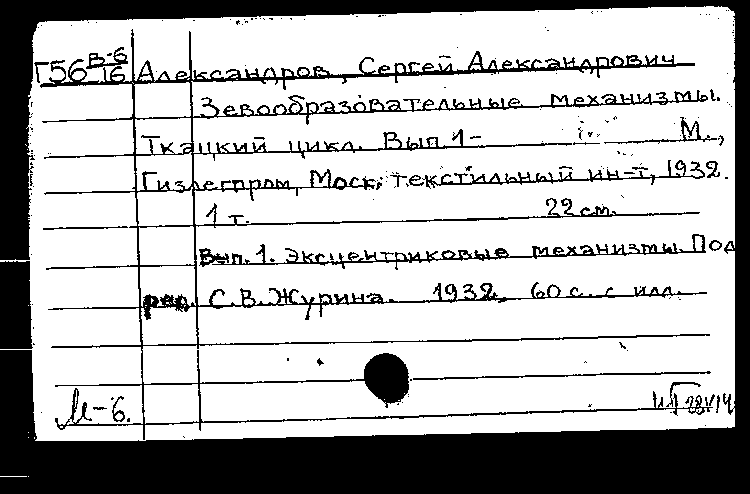 Г56 В-6/16 Александров, Сергей Александрович
Зевообразовательные механизмы.
Ткацкий цикл. Вып 1- М.,
Гизлегпром, Моск. текстильный ин-т, 1932.
1 т. 22 см.
Вып. 1. Эксцентриковые механизмы. Под
ред. С.В. Журина. 1932. 60 с. с илл.
М-6.